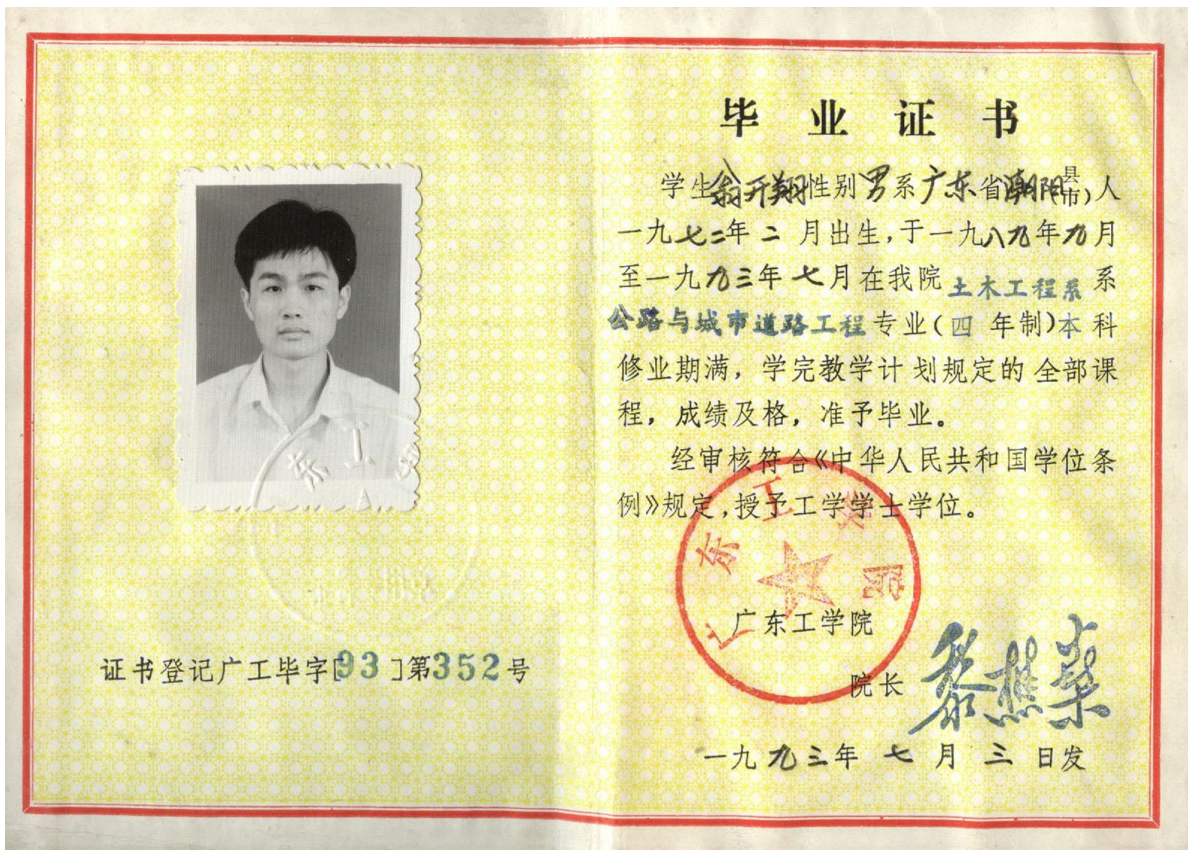 毕业证书
学生翁开翔性别男系广东省潮阳县(市)人
一九七二年二月出生,于一九八九年九月
至一九九三年七月在我院土木工程系系
公路与城市道路工程专业(四年制)本科
修业期满,学完教学计划规定的全部课
程,成绩及格,准予毕业。
经审核符合《中华人民共和国学位条
例》规定,授予工学学士学位。
广东工学院
广东工学院
院长
一九九三年七月三日发
证书登记广工毕字[93]第352号